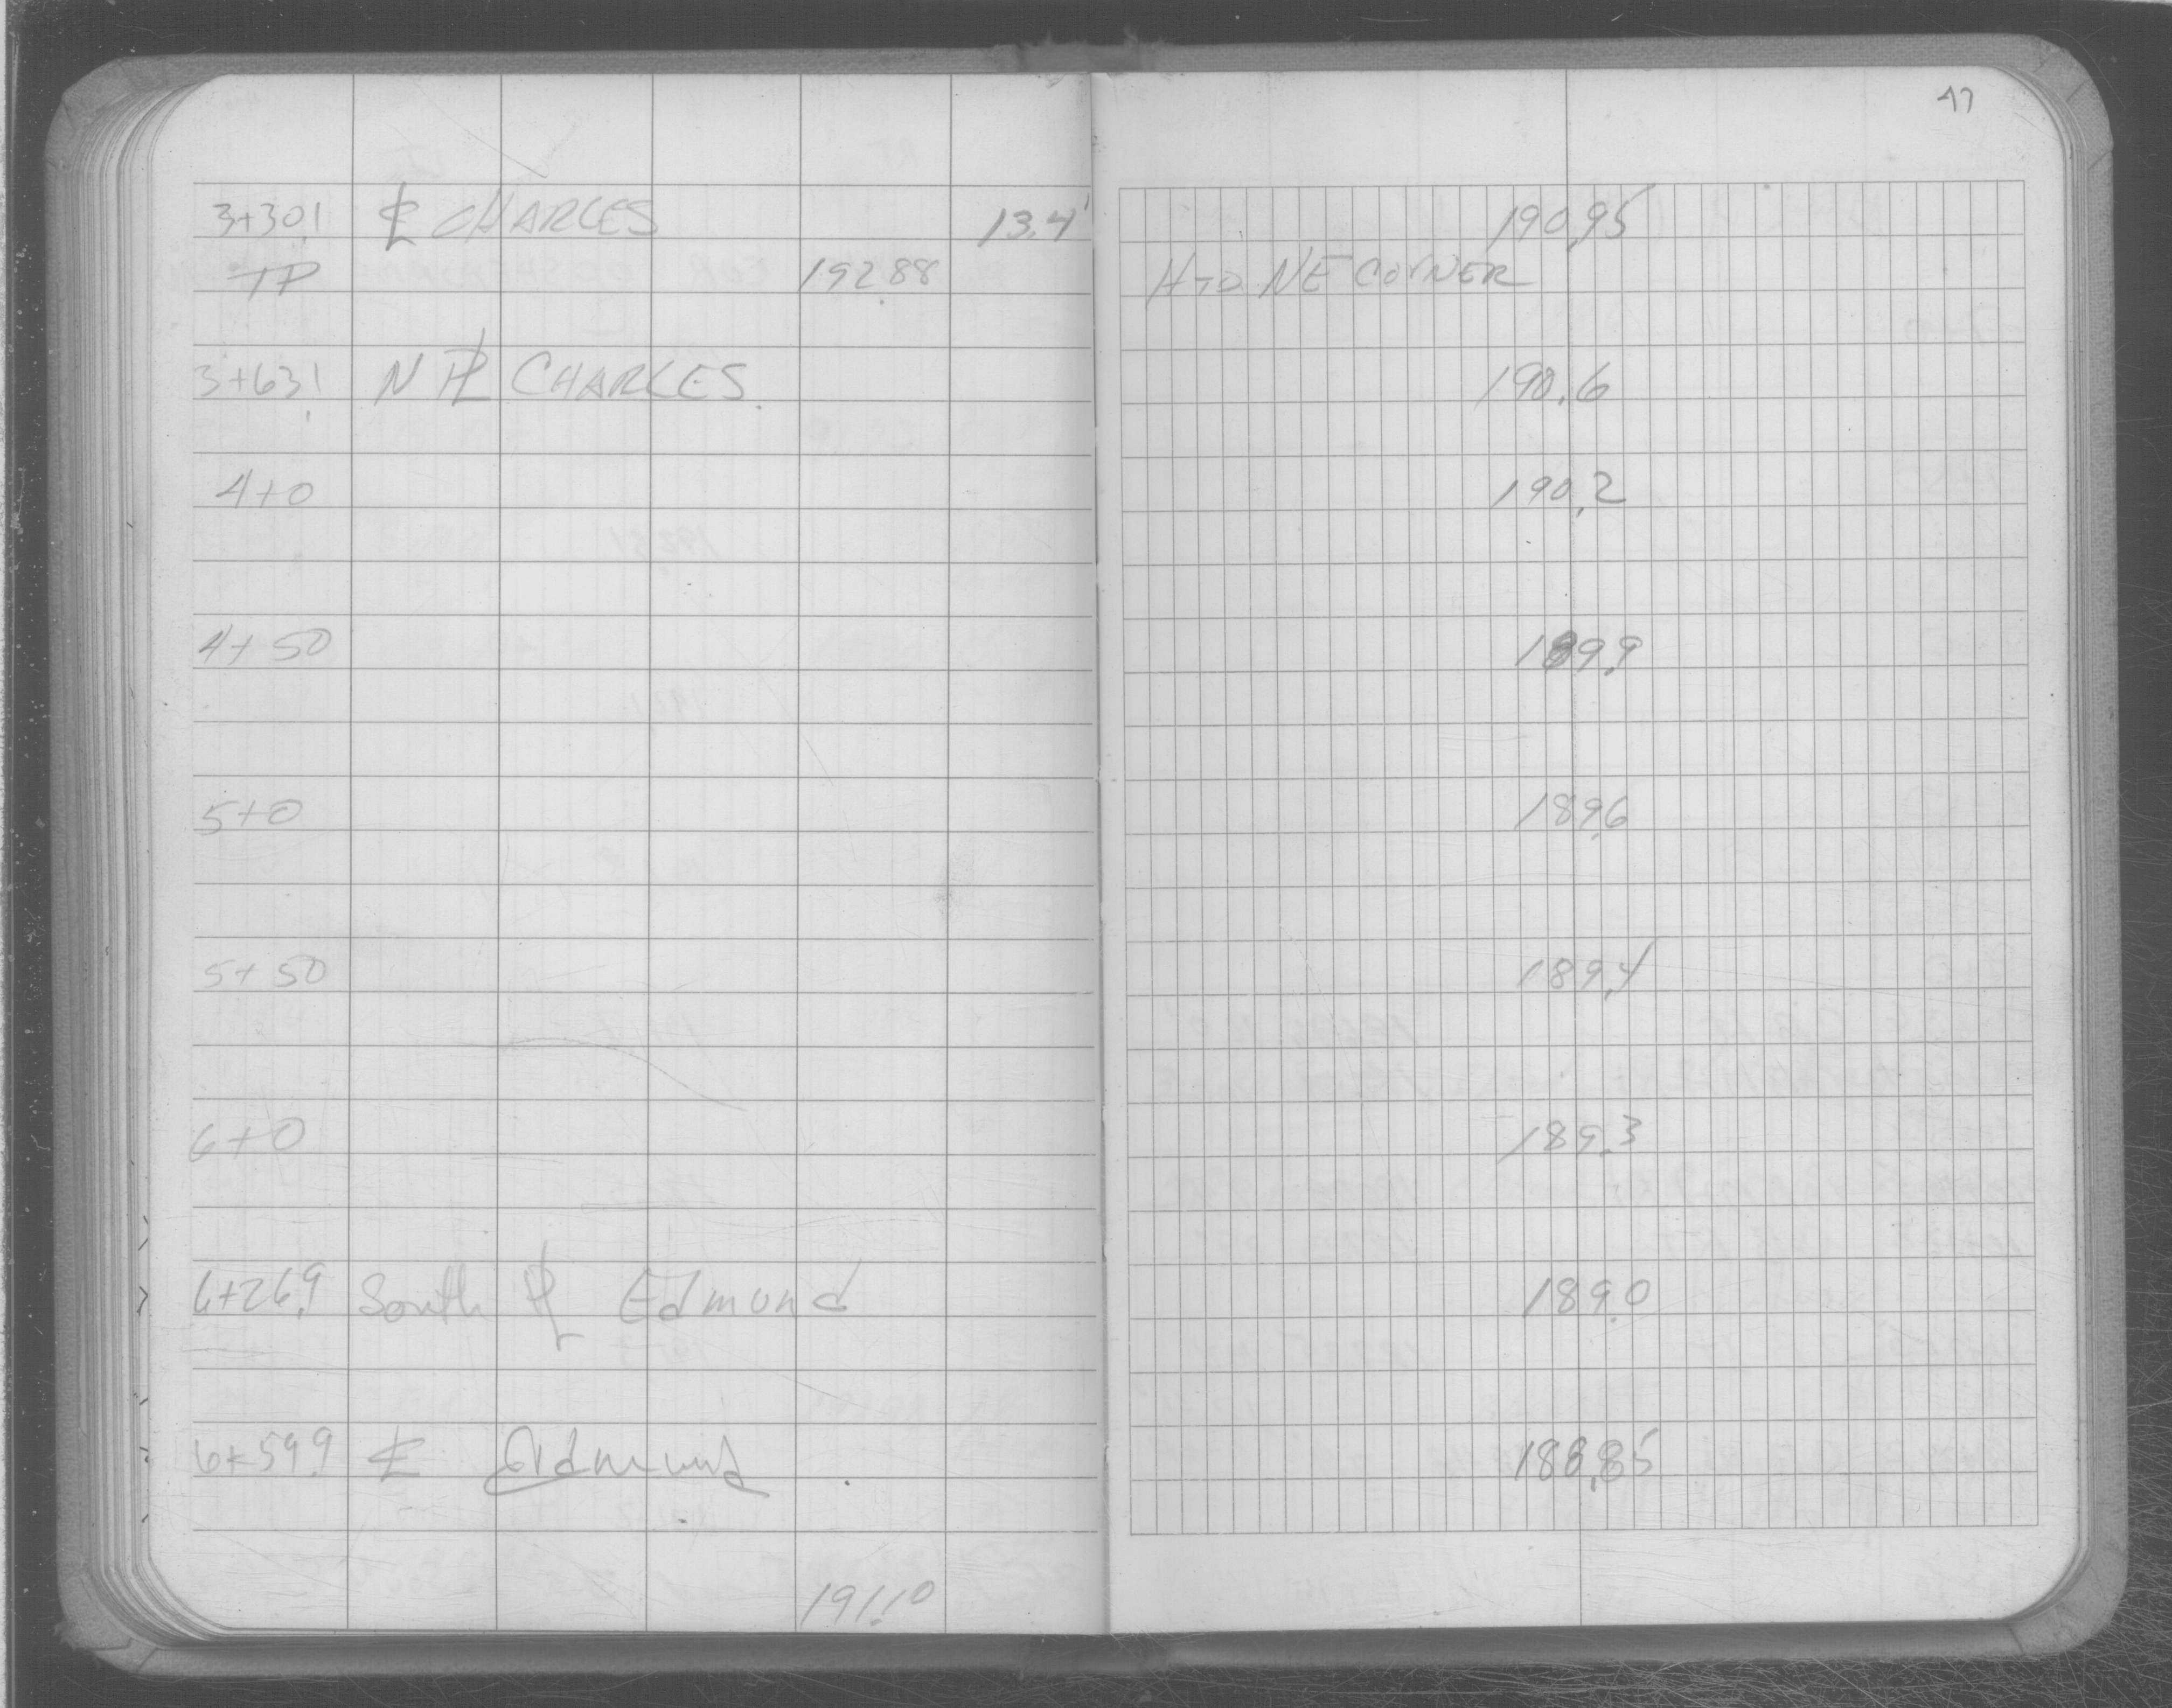 47
3+30.1 ℄ CHARLES 13.4' 190.95
TP 192.88 HYD NE CORNER
3+63.1 N ⅊ CHARLES 190.6
4+0 190.2
4+50 189.9
5+0 189.6
5+50 189.4
6+0 189.3
6+26.9 South ⅊ Edmund 189.0
6+59.9 ℄ Edmund 188.85
191.10